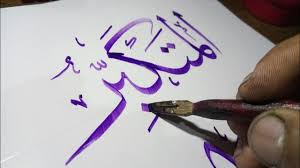 المتكبر